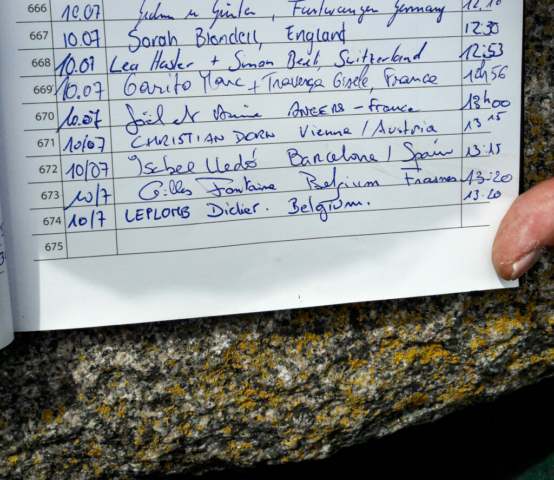 666 10.07 Günter, Furtwangen Germany 12.10
667 10.07 Sarah Blondell, England 12:30
668 10.07 Lea Hasler + Simon Beat, Switzerland 12:53
669 10.07 Garito Marc + Traversa Gisèle, France 12h56
670 10.07 Joël et Annie ANGERS - France 13h00
671 10/07 CHRISTIAN DORN Vienna / Austria 13 15
672 10/07 Isabel Lledó Barcelona / Spain 13:15
673 10/7 Gilles Fontaine Belgium Frasnes 13:20
674 10/7 LEPLOMB Didier. Belgium. 13:20
675